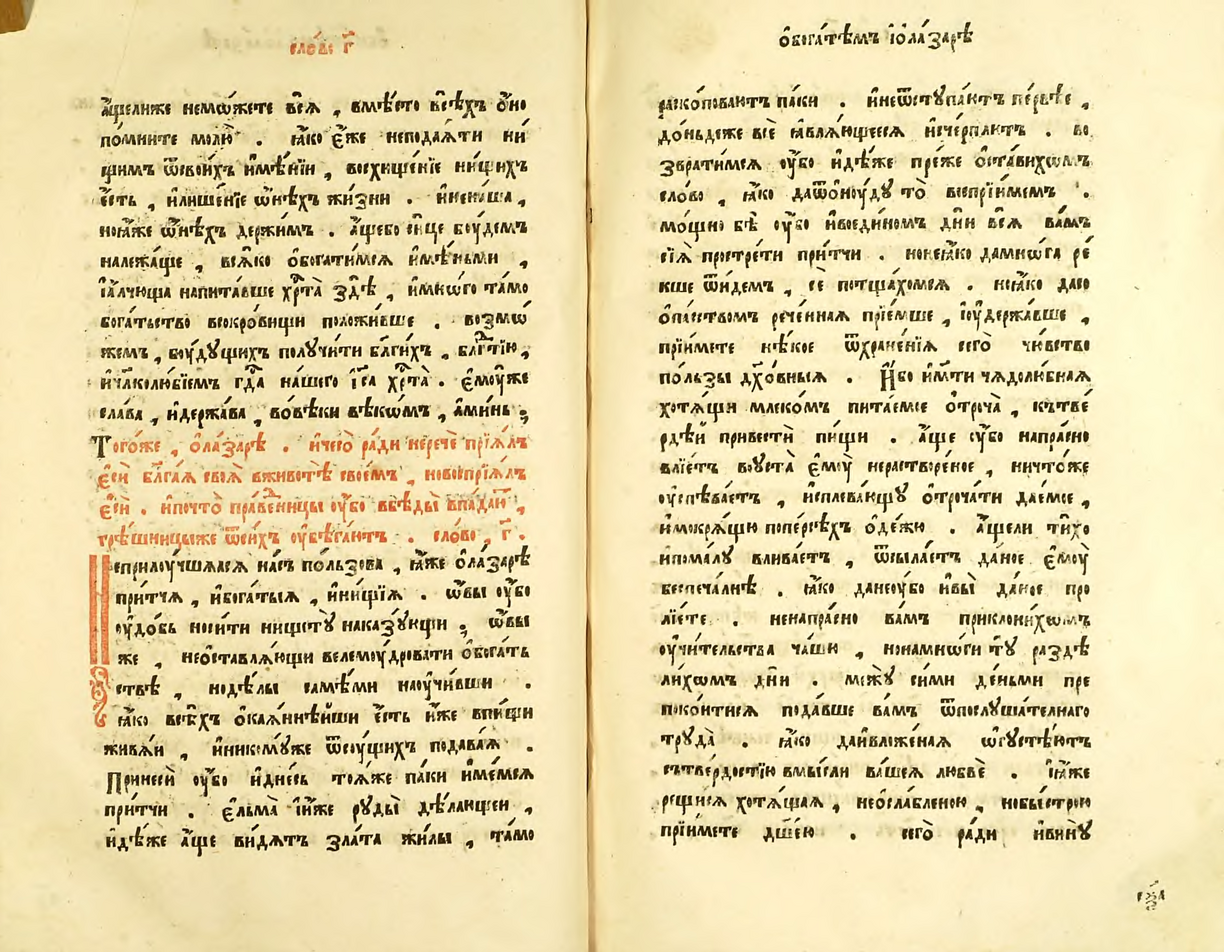 сло́во г҃
а҆́щелиже немѡ́жете всѧ̀ , вмѣ́сто всѣ́хъ ѻ҆́но
по́мните молю̀ . ꙗ҆́ко є҆́же неподаѧ́ти ни
щимъ ѿсвои́хъ и҆мѣ́нїи , восхище́нїе ни́щихъ
є҆́сть , и҆лише́нїе ѡ҆нѣ́хъ жи́зни . и҆нена́ша ,
ноꙗ҆́же ѡ҆нѣ́хъ держи́мъ . а҆́щебо си́це боу́демъ
належа́ще , всѧ́ко ѻ҆богати́мсѧ и҆мѣ́ньми ,
і҆а҆́лчюща напита́вше хрⷭ҇та̀ здѣ̀ , и҆мно́го та́мо
бога́тьство всокро́вищи положи́вше . возмѡ
жемъ , боу́дущихъ получи́ти бл҃ги́хъ , бл҃года́тїю ,
и҆чл҃колю́бїемъ гдⷭ҇а на́шего і҆с҃а хрⷭ҇та̀ . є҆моу́же
сла́ва , и҆держа́ва , вовѣ́ки вѣкѡ́мъ , а҆ми́нь ;
Того́же , ѻ҆ла́зарѣ . и҆чесо̀ ра́ди неречѐ прїѧ́лъ
є҆сѝ бл҃га́ѧ своѧ̀ вживотѣ̀ свое́мъ , новоспрїѧ́лъ
є҆сѝ . и҆почто̀ пра́веницы оу҆́бо вбѣды̀ впа́даю ,
грѣ́шницыже ѿси́хъ оу҆бѣ́гаютъ . сло́во , г҃ .
Неприлоу́чшѧѧсѧ на́съ по́льзова , ꙗ҆́же ѻ҆ла́зарѣ
при́тчѧ , и҆бога́тыѧ , и҆ни́щїѧ . ѡ҆́вы оу҆́бо
оу҆до́бь носи́ти нищетꙋ̀ наказꙋ́ющи ; ѡ҆́вы
же , неѡ҆ставлѧ́ющи велемоу́дровати ѻ҆бога́ть
ствѣ , нодѣ́лы самѣ́ми наоучи́вши .
ꙗ҆́ко всѣ́хъ ѻ҆каѧ́ннѣйши є҆́сть и҆́же впи́щи
живѧ́и , и҆никомꙋ́же ѿсоу́щихъ подава́ѧ .
Принеси́ оу҆́бо и҆дне́сь тоѧ́же па́ки и҆ме́мсѧ
при́тчи . є҆льма̀ і҆и҆́же рꙋды̀ дѣ́лающеи ,
и҆дѣ́же а҆́ще ви́дѧтъ зла́та жи́лы , та́мо
ѻ҆бога́тѣмъ і҆ѻла́зарѣ
раскопова́ютъ па́ки . и҆неѿстꙋпа́ютъ пе́рвѣе ,
до́ньдеже всѐ ꙗ҆влѧ́ющеесѧ и҆счерпа́ютъ . во
звратимсѧ оу҆́бо и҆дѣ́же пре́же ѻ҆ста́вихѡмъ
сло́во , ꙗ҆́ко даѿѻноу́дꙋ то̀ воспрїи́мемъ .
мо́щно бѣ̀ оу҆́бо и҆воеди́номъ днѝ всѧ̀ ва́мъ
сїѧ̀ простре́ти при́тчи . нонеꙗ҆́ко дамно́га ре́
кше ѿи́демъ , сѐ потща́хомсѧ . ноꙗ҆́ко даso
ѻ҆па́сствомъ рече́ннаѧ прїе́мше , і҆оу҆держа́вше ,
прїи́мете нѣ́кое ѿхране́нїѧ сего̀ чю́вство
по́льзы дх҃о́вныѧ . И҆́бо и҆ма́ти чѧдолю́бнаѧ
хотѧ́щи млеко́мъ пита́емое ѻ҆троча̀ , къ тве́
рдѣй привестѝ пи́щи . а҆́ще оу҆́бо напра́сно
влїе́тъ воуста̀ є҆моу̀ нераство́реное , ничто́же
оу҆спѣва́етъ , и҆сплева́ющꙋ ѻ҆троча́ти дае́мое ,
и҆мокрѧ́щю поперсѣ́хъ ѻ҆де́жю . а҆́щели ти́хо
и҆пома́лꙋ влива́етъ , ѿсыла́етъ да́ное є҆моу̀
беспеча́лнѣ . ꙗ҆́ко данеоу҆́бо и҆вы̀ да́ное про
лїе́те . ненапра́сно ва́мъ приклони́хѡмъ
оу҆чи́тельства ча́шю , нонамно́ги тꙋ̀ раздѣ
ли́хомъ днѝ . ме́жꙋ си́ми де́ньми пре
поко́итисѧ пода́вше ва́мъ ѿпослꙋша́телнаго
трꙋда̀ . ꙗ҆́ко даи҆вложе́наѧ ѡ҆гꙋстѣ́ютъ
сътве́рдостїю вмы́сли ва́шеѧ любвѐ . і҆ꙗ҆́же
рещи́сѧ хотѧ́щаѧ , неѡ҆сла́бленою , нобы́строю
прїи́мете дш҃е́ю . сего̀ ра́ди и҆винꙋ̀